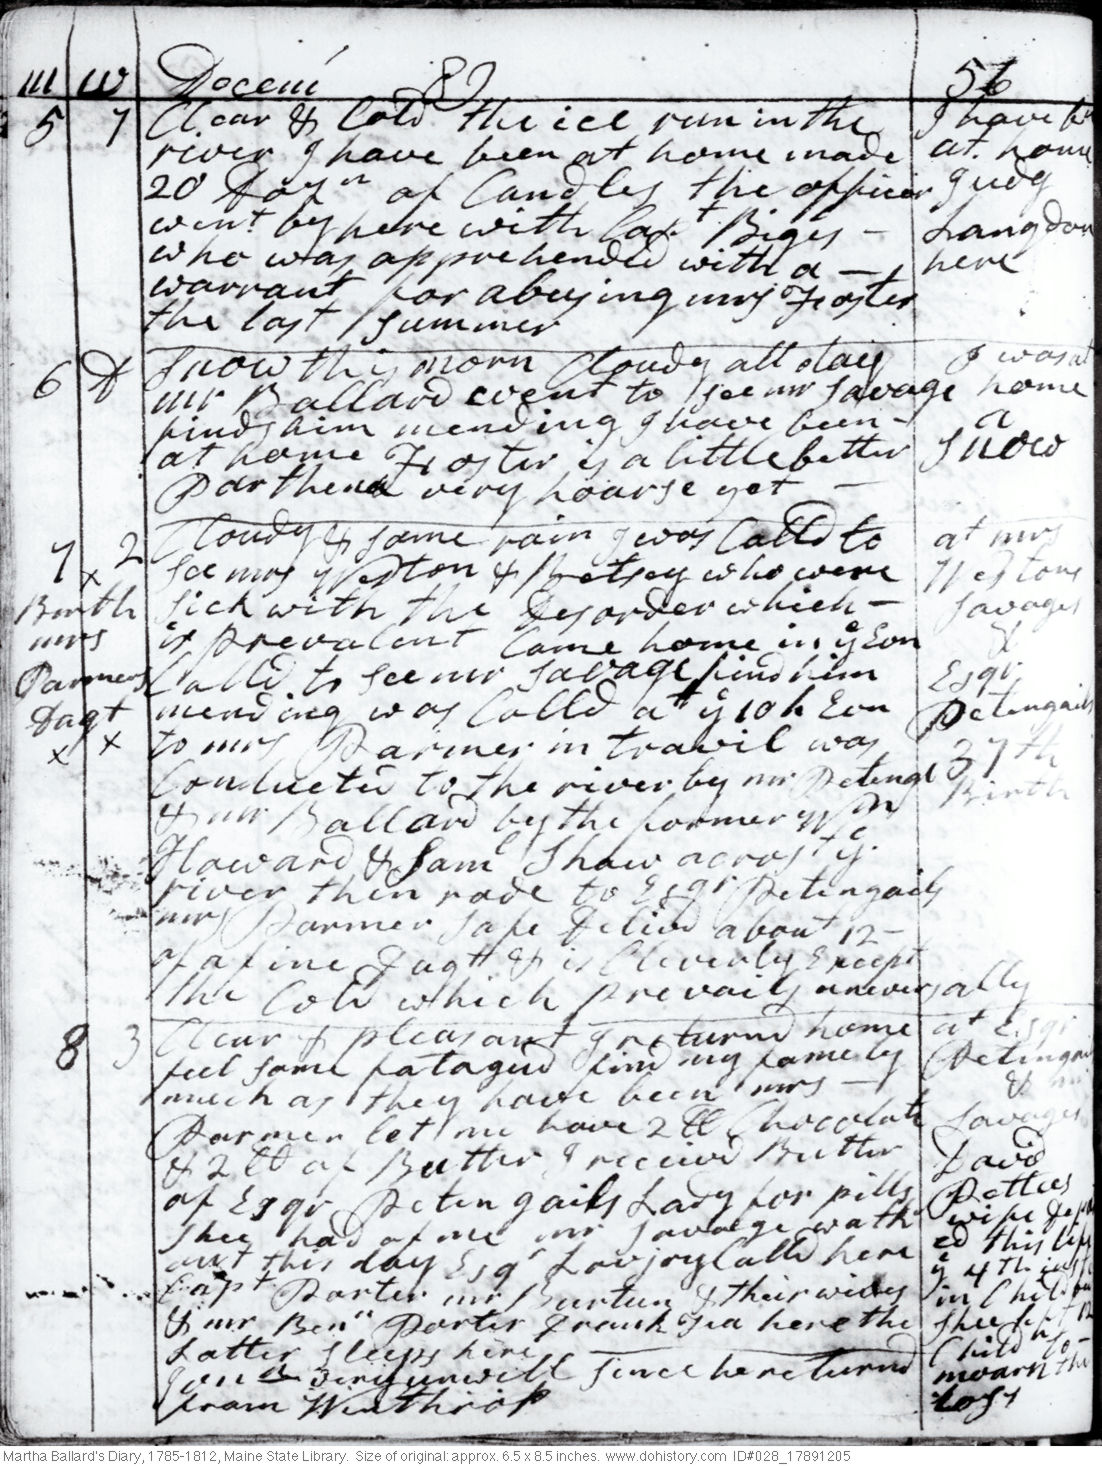 m w Decem 89 56
5 7 Clear & Cold the ice run in the
river I have been at home made
20 Dozn of Candles the officer
went by here with Capt Biges -
who was apprehended with a -
warrant for abusing mrs Foster
the last Summer
I have bn
at home
Judg
Langdon
here
6 D Snow this morn Cloudy all day
mr Ballard went to see mr Savage
finds him mending I have been -
at home Foster is a little better
Parthena very hoarse yet -
I was at
home
a
Snow
7 2 Cloudy & some rain I was Calld to
x
see mrs Weston & Betsey who were
sick with the Desorder which -
is prevalent Came home in ye Evn
Calld to see mr Savage find him
mending was Calld at ye 10 h Evn
to mrs Parmer in travil was
Conducted to the river by mr Petengl
& mr Ballard by the former Wm
Howard & Saml Shaw across ye
river then rode to Esqr Petengails
mrs Parmer safe Delivd about 12 -
of a fine Dagt & is Cleverly Except
the Cold which prevails universally
Birth
mrs
Parmers
Dagt
x x
at mrs
Westons
Savages
&
Esqr
Petengails
37th
Birth
8 3 Clear & pleasant I returnd home
feel some fatagud find my famely
much as they have been mrs -
Parmer let me have 2 lb Chocolate
& 2 lb of Butter I receivd Butter
of Esqr Petengails Lady for pills
shee had of me mr Savage wath
out this day Esqr Lovjoy Calld here
Capt Porter mr Burtun & their wives
& mr Benn Porter Drank Tea here the
Latter sleeps here
Jona is very unwell since he returnd
from Winthrop
at Esqr
Petengails
& mr
Savages
David
Pettees
wife Depart
ed this life
ye 4th inst
in Child
shee left 12
Child n to -
mourn the
loss
Martha Ballard's Diary, 1785-1812, Maine State Library. Size of original: approx. 6.5 x 8.5 inches. www.dohistory.com ID#028_17891205